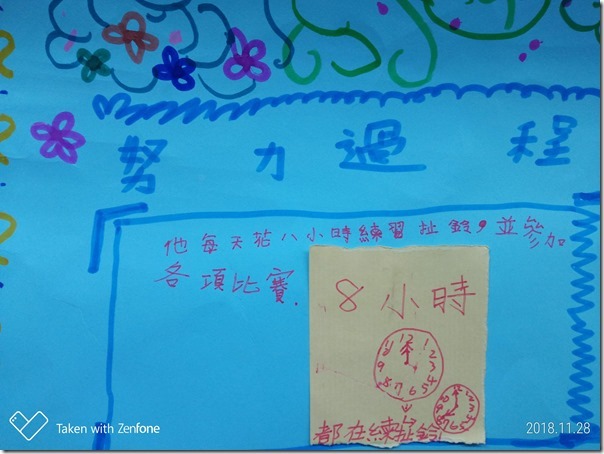 努力過程
他每天花八小時練習扯鈴，並參加
各項比賽.
8小時
12 1
2
9 3
7 6 5 4
都在練扯鈴
Taken with Zenfone
2018.11.28